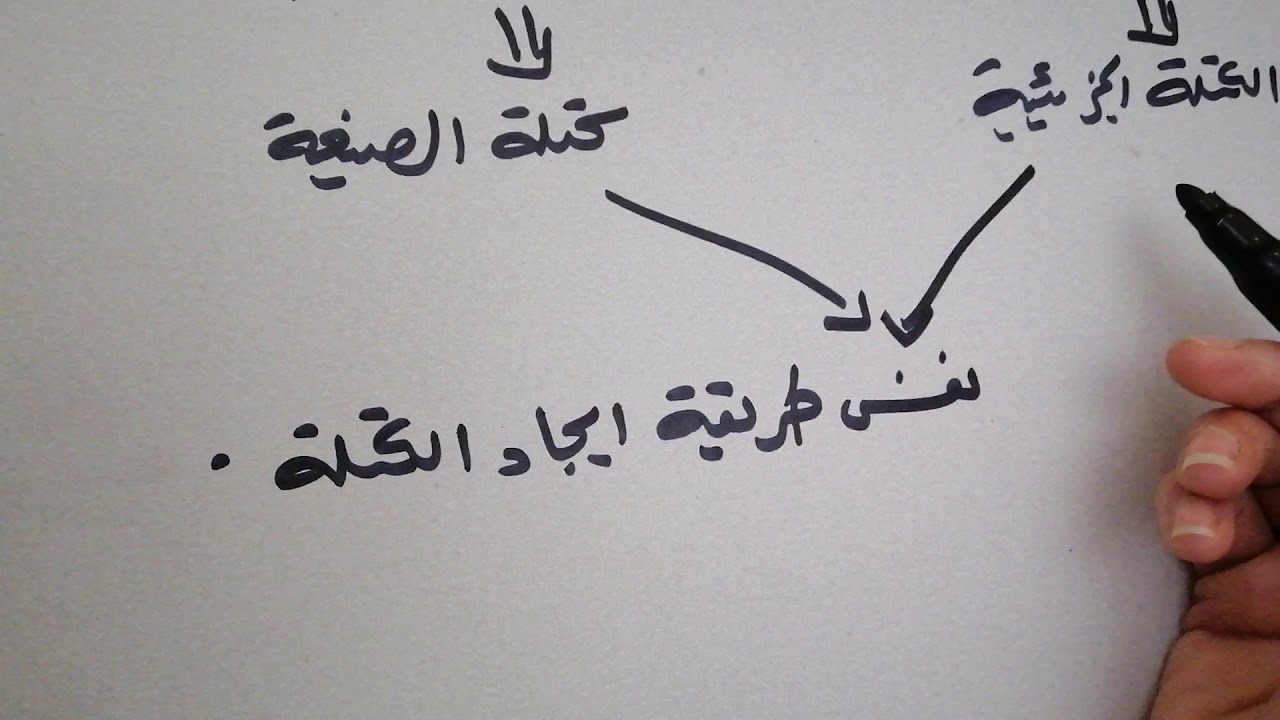 الكتلة الجزيئية
كتلة الصيغة
نفس طريقة ايجاد الكتلة .